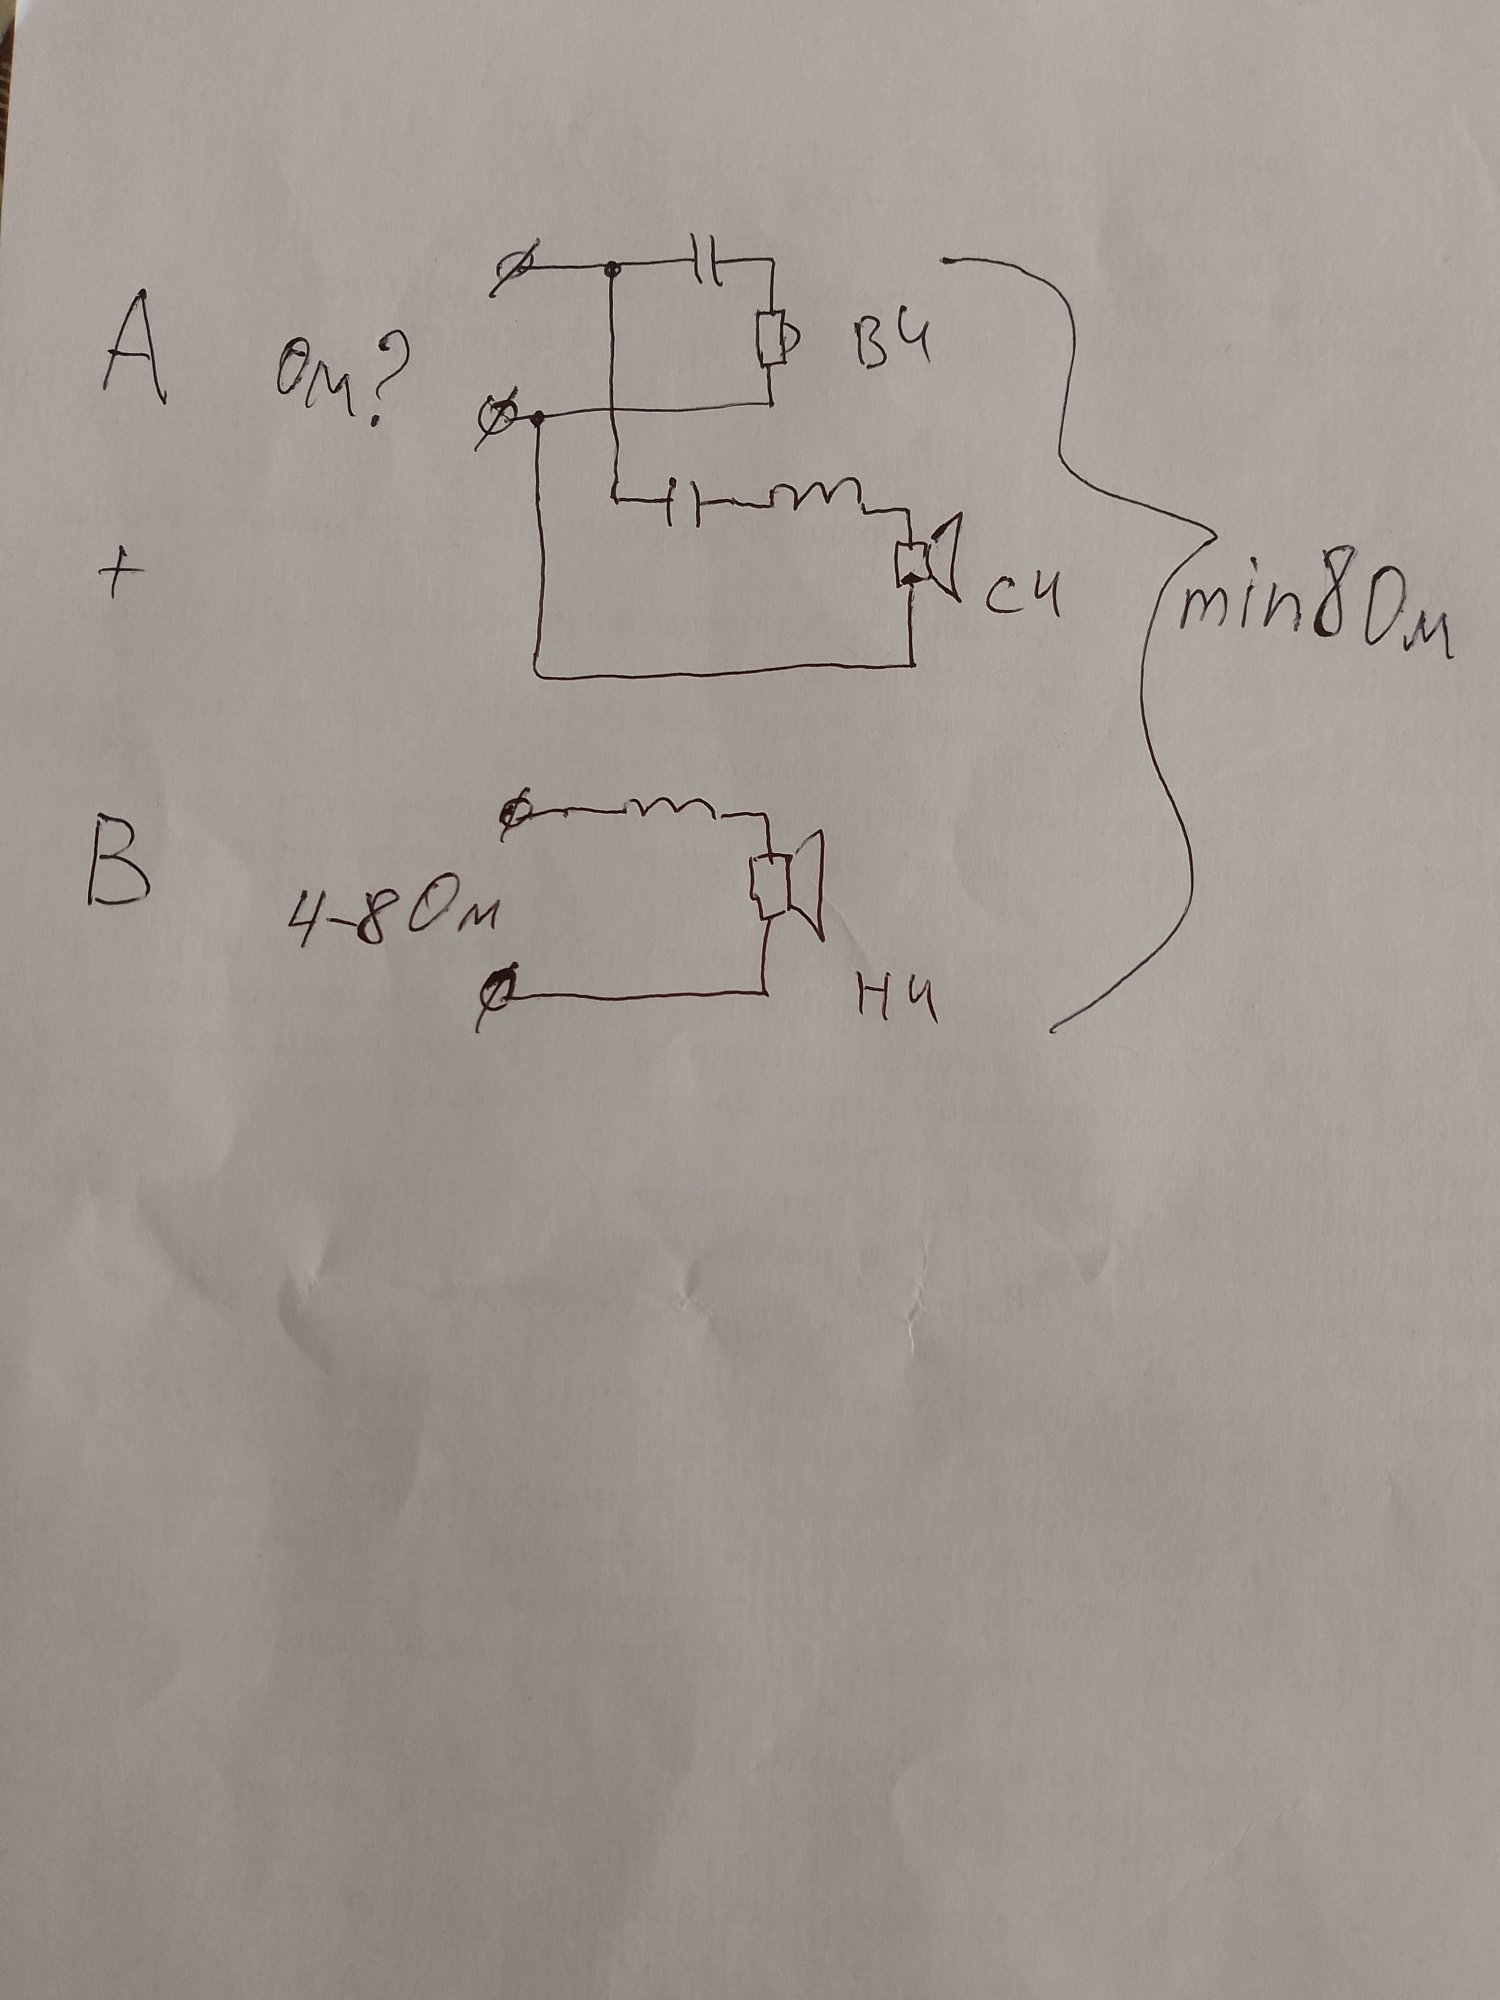 A Ом? ВЧ
+ СЧ min 8 Ом
B 4-8 Ом НЧ